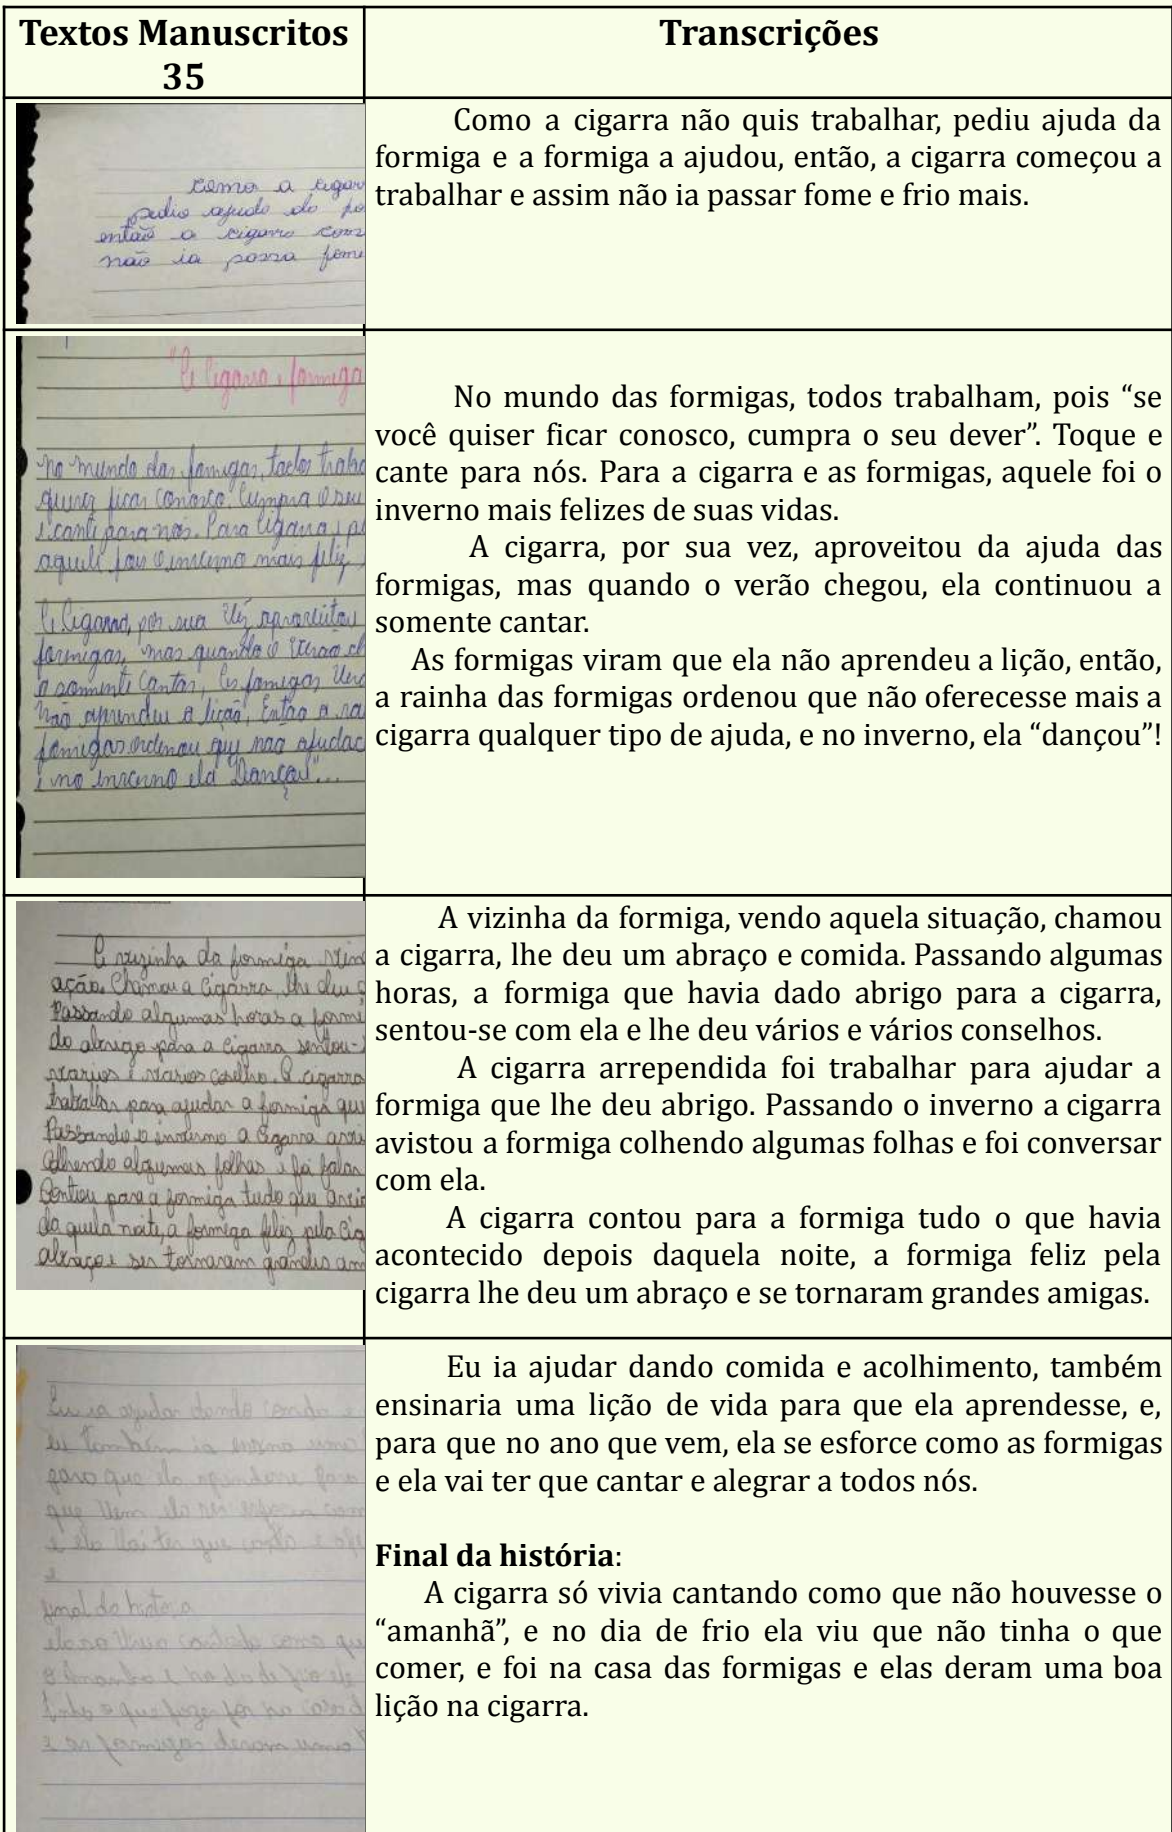 Textos Manuscritos
35
Transcrições
como a cigar
pedio ajuda da fo
então a cigarra com
não ia possa fome
Como a cigarra não quis trabalhar, pediu ajuda da
formiga e a formiga a ajudou, então, a cigarra começou a
trabalhar e assim não ia passar fome e frio mais.
"A Cigarra e formiga
no mundo das formigas, todos traba
quirez ficar conosco. Cumpra o seu
e cante para nós. Para Cigarra e
aquele foi o inverno mais feliz
A Cigarra, por sua vez aproveitou
formigas, mas quando o verão c
a somente cantar, As formigas
não aprendeu a lição, Então a ra
formigas ordenou que não ajudac
e no inverno ela "Dançou"...
No mundo das formigas, todos trabalham, pois “se
você quiser ficar conosco, cumpra o seu dever”. Toque e
cante para nós. Para a cigarra e as formigas, aquele foi o
inverno mais felizes de suas vidas.
A cigarra, por sua vez, aproveitou da ajuda das
formigas, mas quando o verão chegou, ela continuou a
somente cantar.
As formigas viram que ela não aprendeu a lição, então,
a rainha das formigas ordenou que não oferecesse mais a
cigarra qualquer tipo de ajuda, e no inverno, ela “dançou”!
A vizinha da formiga
ação. Chamou a Cigarra, lhe deu
Passando algumas horas a formi
do abrigo para a cigarra sentou-
varios e varios coselho. A cigarra
trabalhar para ajudar a formiga que
Passando o inverno a cigarra avis
Colhendo algumas folhas e foi falar
Contou para a formiga tudo que
da quela noite, a formiga feliz pela cig
abraço e ser tornaram grandes am
A vizinha da formiga, vendo aquela situação, chamou
a cigarra, lhe deu um abraço e comida. Passando algumas
horas, a formiga que havia dado abrigo para a cigarra,
sentou-se com ela e lhe deu vários e vários conselhos.
A cigarra arrependida foi trabalhar para ajudar a
formiga que lhe deu abrigo. Passando o inverno a cigarra
avistou a formiga colhendo algumas folhas e foi conversar
com ela.
A cigarra contou para a formiga tudo o que havia
acontecido depois daquela noite, a formiga feliz pela
cigarra lhe deu um abraço e se tornaram grandes amigas.
Eu ia ajudar dando comida e
eu também ia ensina uma
para que ela aprendesse para
que vem ela com
e ela vai ter que canta e
e
final da
como que
O e no dia de frio ela
tinha o que foi na casa d
e as formigas deram uma
Eu ia ajudar dando comida e acolhimento, também
ensinaria uma lição de vida para que ela aprendesse, e,
para que no ano que vem, ela se esforce como as formigas
e ela vai ter que cantar e alegrar a todos nós.
Final da história:
A cigarra só vivia cantando como que não houvesse o
“amanhã”, e no dia de frio ela viu que não tinha o que
comer, e foi na casa das formigas e elas deram uma boa
lição na cigarra.